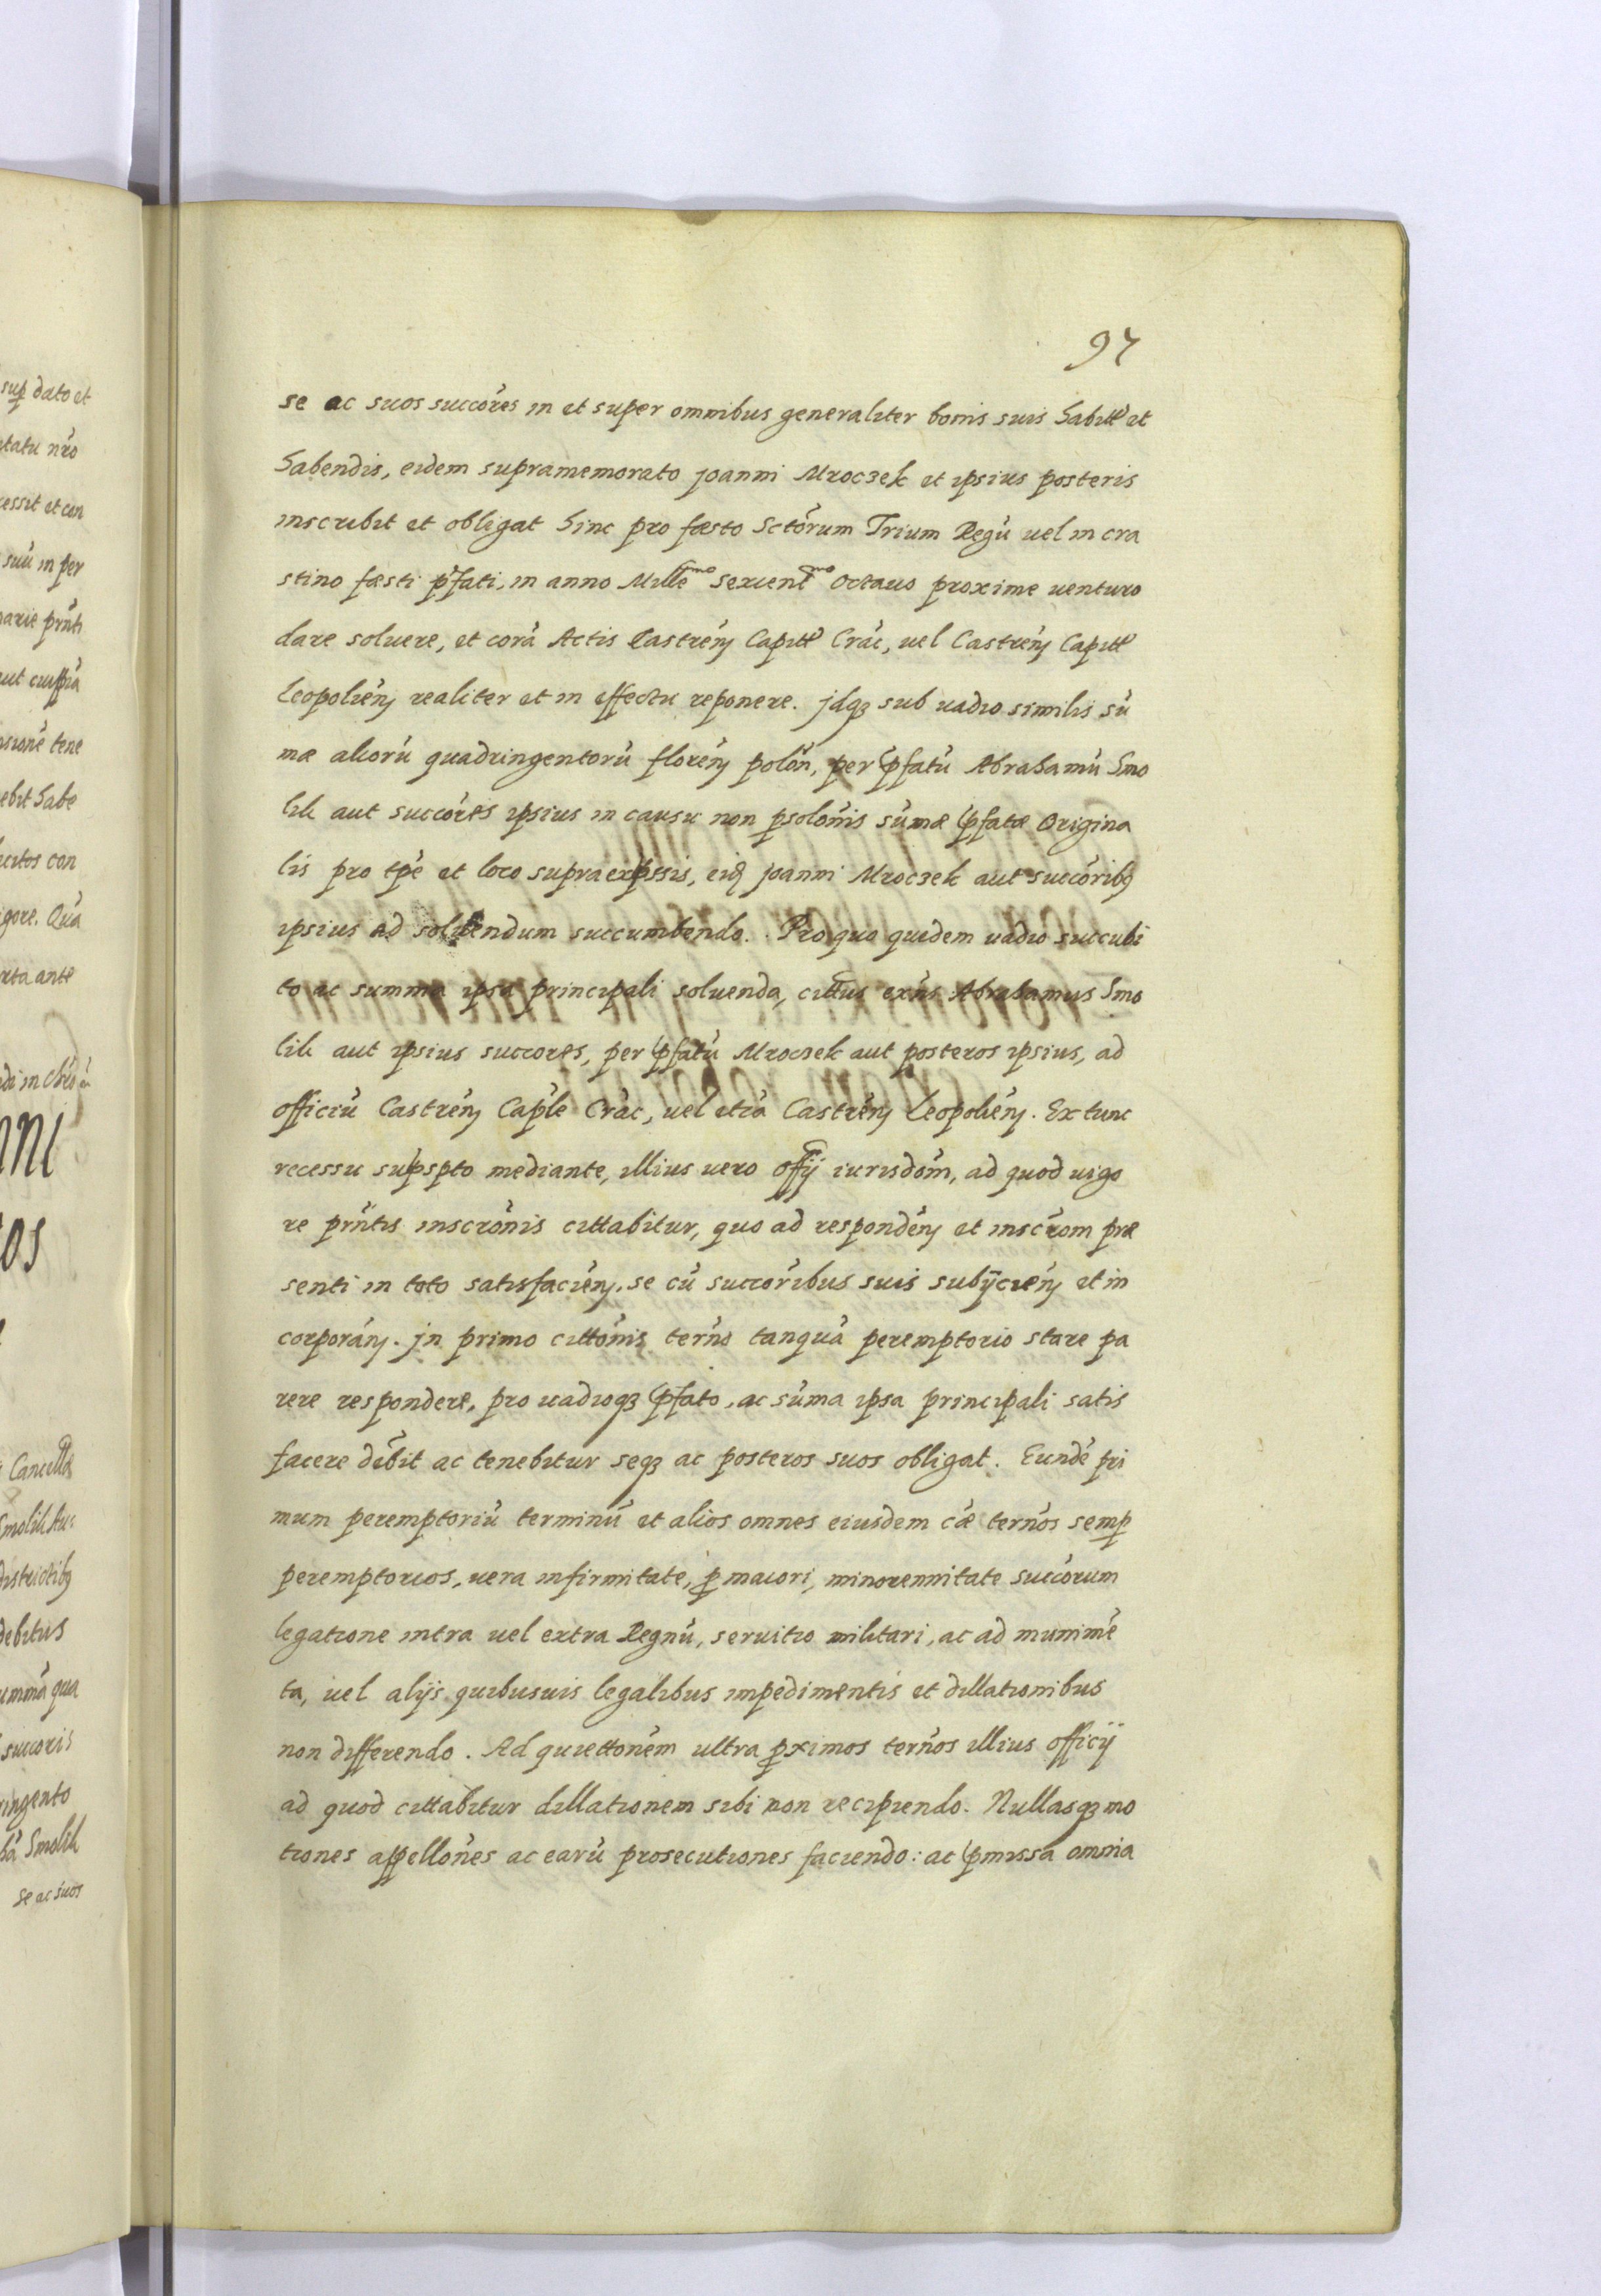 sup dato et
tatu nro
cessit et con
suu in per
narie prnti
aut
sione tene
ebit habe
citos con
igore. Qua
xta ante
Cancella
Smolik
districtibq
debitus
umma qua
succoris
ringento
Smolik
se ac suos
97
se ac suos succóres in et super omnibus generaliter bonis suis habitt et
habendis, eidem supramemorato joanni Mroczek et ipsius posteris
inscribit et obligat hinc pro fæsto Sctórum Trium Regú uel in cra
stino fæsti pfati, in anno Mille^mo sexcent^mo octauo proxime uenturo
dare soluere, et corá Actis Castrén Capitt Crác, uel Castrén Capitt
Leopolién realiter et in effectu reponere. jdqz sub uadio similis sú
mæ aliorú quadringentorú florén polón, per pfatú Abrahamú Smo
lik aut succóres ipsius in causu non psolónis súmæ pfatæ Origina
lis pro tpé et loco supraexpssis, eidq joanni Mroczek aut succóribq
ipsius ad soluendum succumbendo. Pro quo quidem uadio succubi
to ac summa ipsa principali soluenda, cittus exńs Abrahamus Smo
lik aut ipsius succores, per pfatú Mroczek aut posteros ipsius, ad
officiú Castrén Caple Crác, uel etiá Castrén Leopolién. Ex tunc
recessu supspto mediante, illius uero offy iurisdom, ad quod uigo
re prńtis inscrónis cittabitur, quo ad respondén et inscrom præ
senti in toto satisfacién, se cú succoribus suis subijcién et in
corporán. jn primo cittónis terno tanquá peremptorio stare pa
rere respondere, pro uadioqz pfato, ac súma ipsa principali satis
facere débit ac tenebitur seqz ac posteros suos obligat. Eundé pri
mum peremptoriú terminú et alios omnes eiusdem cæ ternos semp
peremptorios, uera infirmitate, p maiori, minorennitate succórum
legatione intra uel extra Regnú, seruitio militari, ac ad munimé
ta, uel alijs quibusuis legalibus impedimentis et dillationibus
non differendo. Ad quiettonem ultra pximos ternos illius officij
ad quod cittabitur dillationem sibi non recipiendo. Nullasqz mo
tiones appellónes ac earú prosecutiones faciendo: ac pmissa omnia